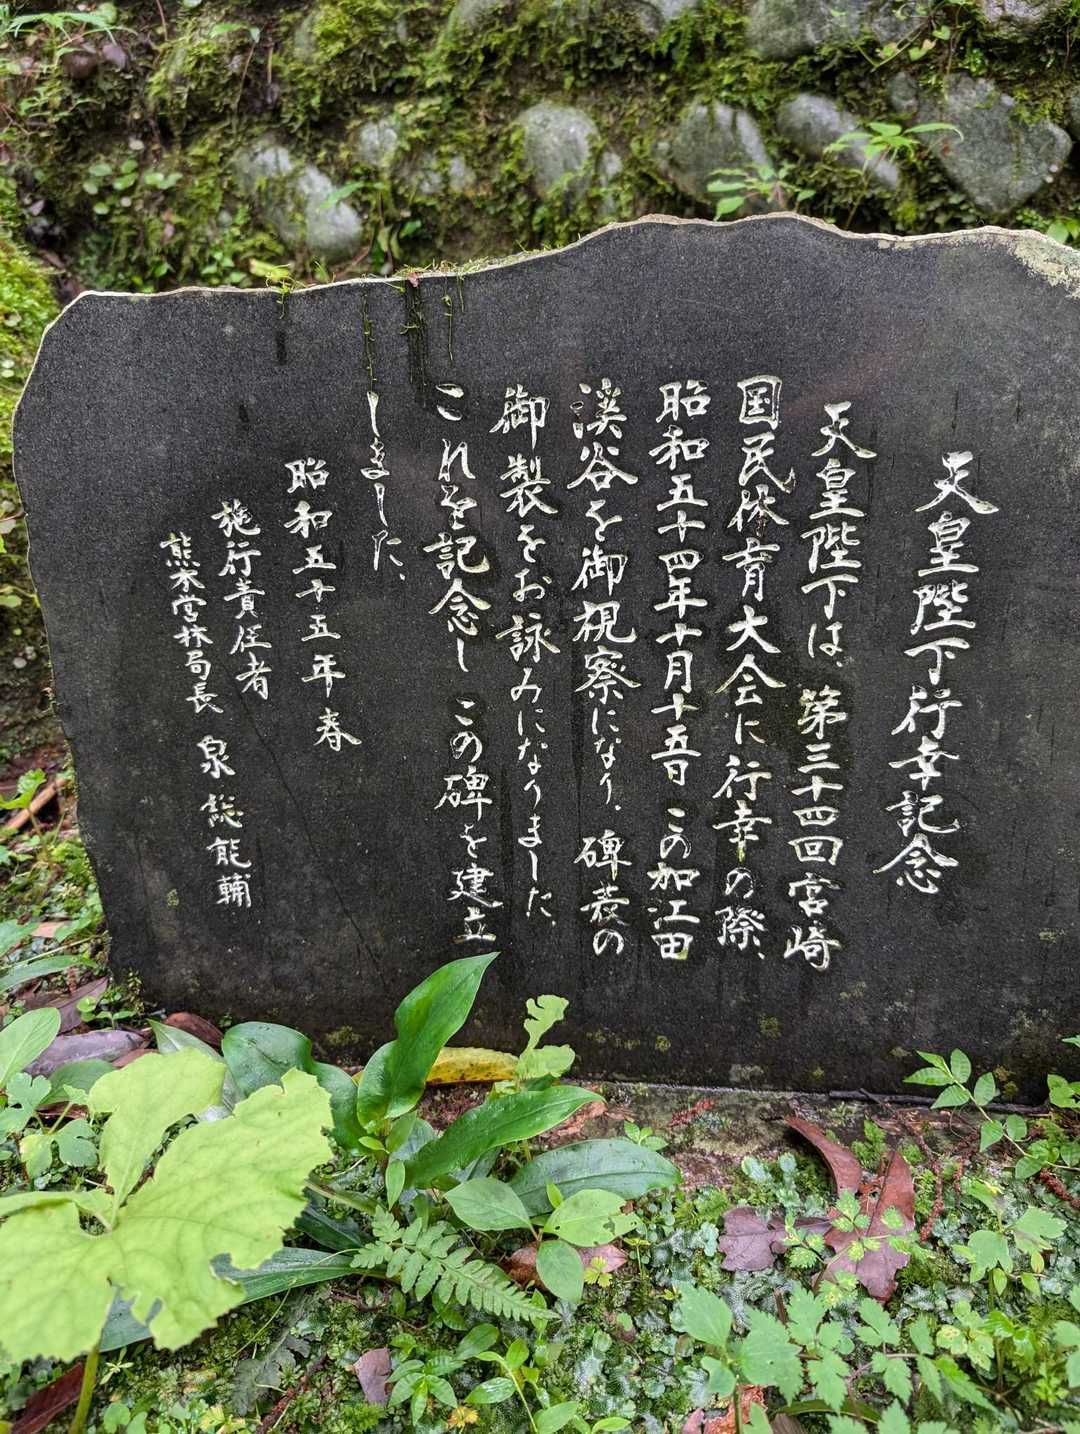 天皇陛下行幸記念
天皇陛下は、第三十四回宮崎
国民体育大会に行幸の際、
昭和五十四年十月十五日この加江田
渓谷を御視察になり、碑表の
御製をお詠みになりました、
これを記念しこの碑を建立
しました、
昭和五十五年春
施行責任者
熊本営林局長 泉総能輔